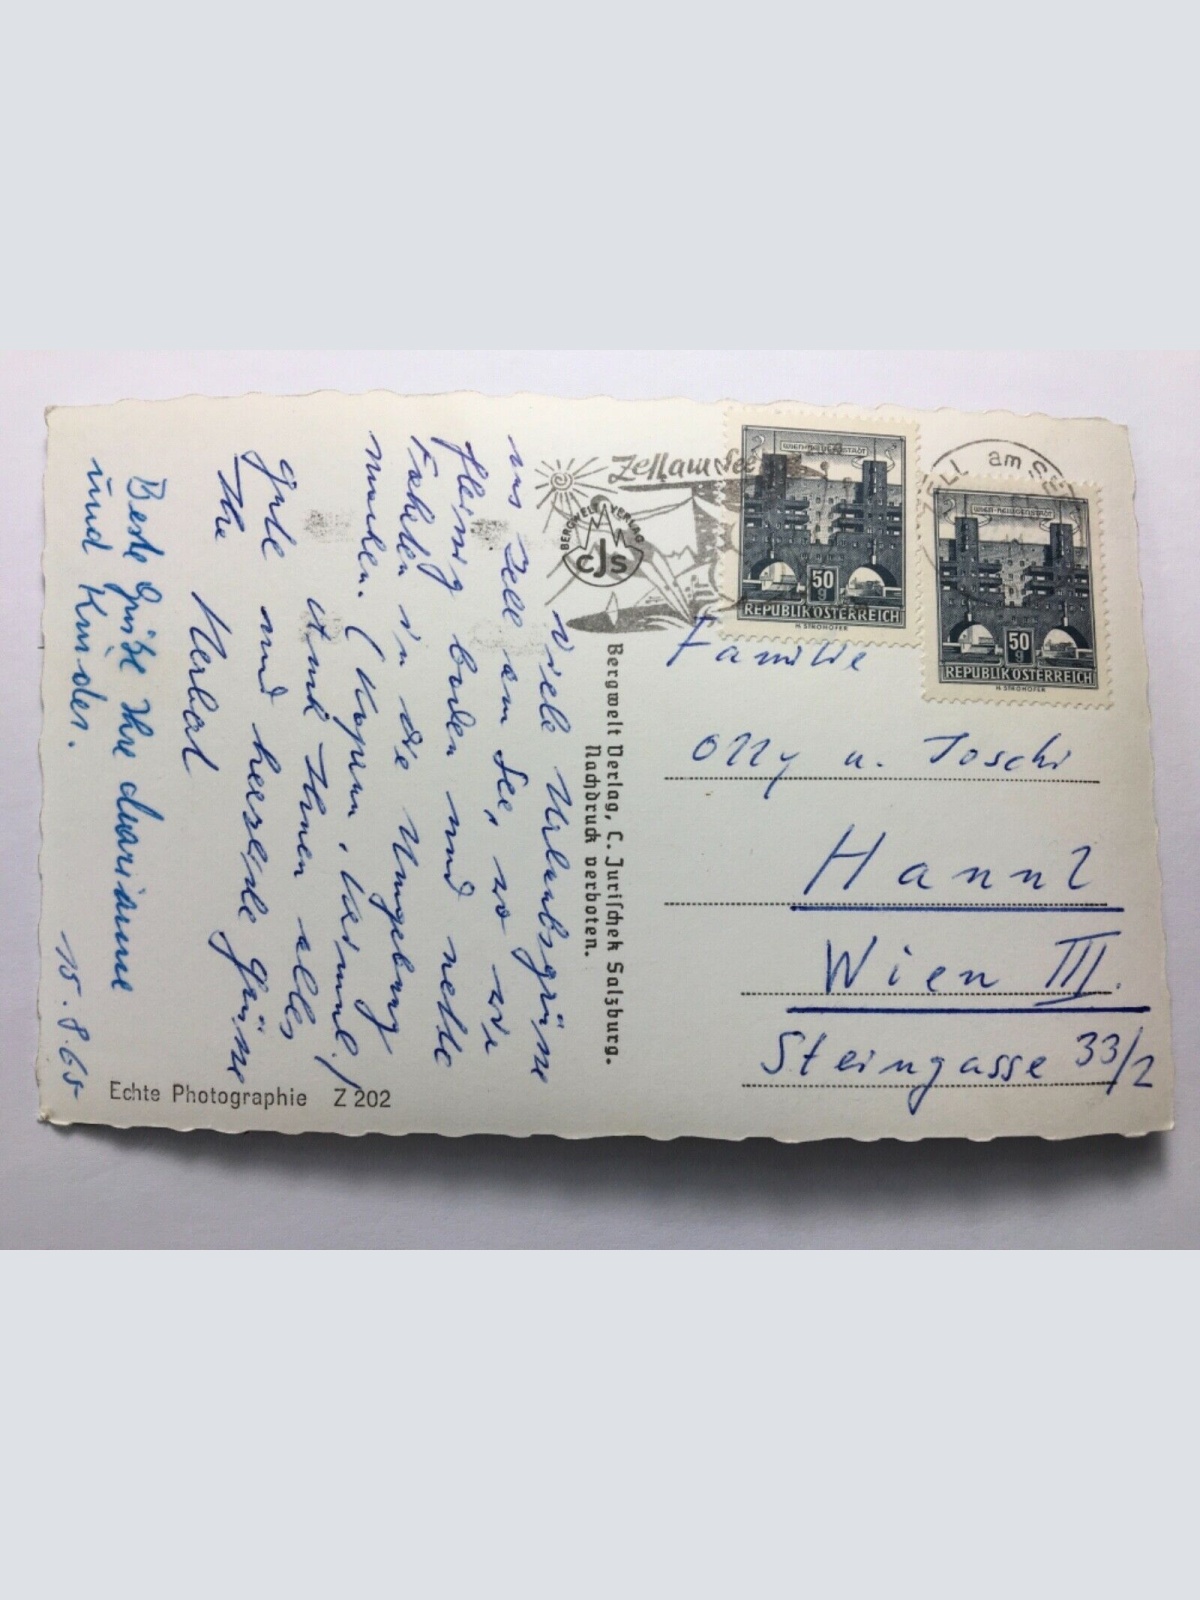 Viele Urlaubsgrüsse
aus Zell am See, wo wir
fleissig baden und nette
Fahrten in die Umgebung
machen. (Kaprun,
Auch Ihnen alles
gute und herzliche Grüsse
Ihr
Beste Grüße Ihre Marianne
und Kinder.
15.8.65
Echte Photographie Z 202
Bergwelt Verlag, C. Jurischek Salzburg.
Nachdruck verboten.
BERGWELT VERLAG
CJS
Zell am See
ZELL am SEE
WIEN-HEILIGENSTADT
50
g
REPUBLIK ÖSTERREICH
H. STROHOFER
WIEN-HEILIGENSTADT
50
g
REPUBLIK ÖSTERREICH
H. STROHOFER
Familie
Olly u. Joschi
Hannl
Wien III.
Steingasse 33/2